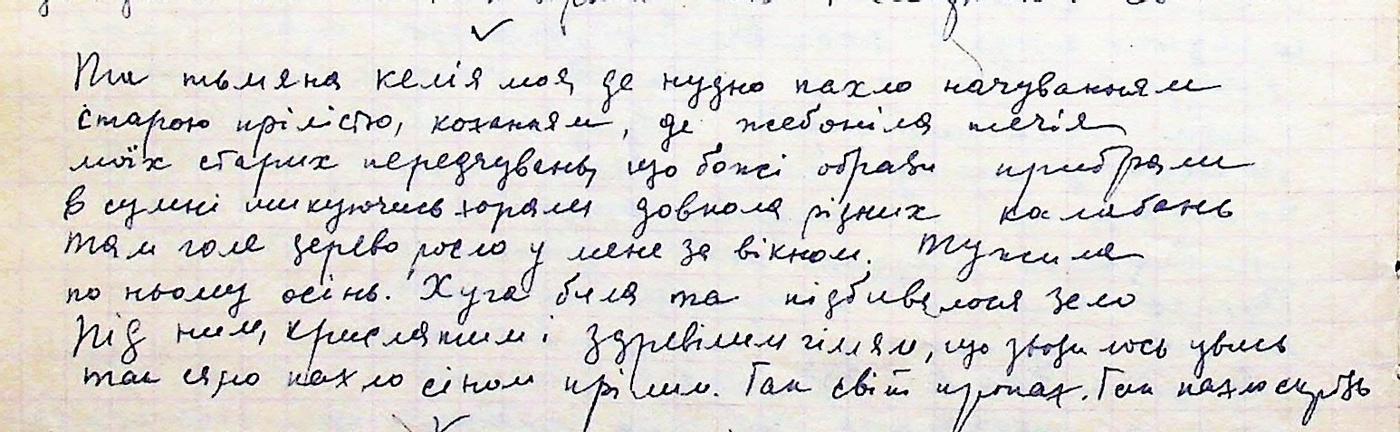 Та тьмяна келія моя, де нудно пахло начуванням
старою прілістю, коханням, де жебоніла течія
моїх старих передчувань, що божі образи прибрали
в сумні микуючись хорали довкола різних калабань
Там голе дерево росло у мене за вікном. Тужила
по ньому осінь. Хуга била та підбивалося зело
під ним, крислатим і здревілим гіллям, що зводилось увись
так пахло сіном прілим. Так світ пропах. Так пахло скрізь